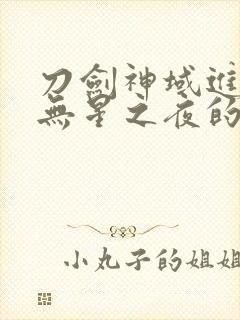 刀劍神域進
無星之夜的
小丸子的姐姐